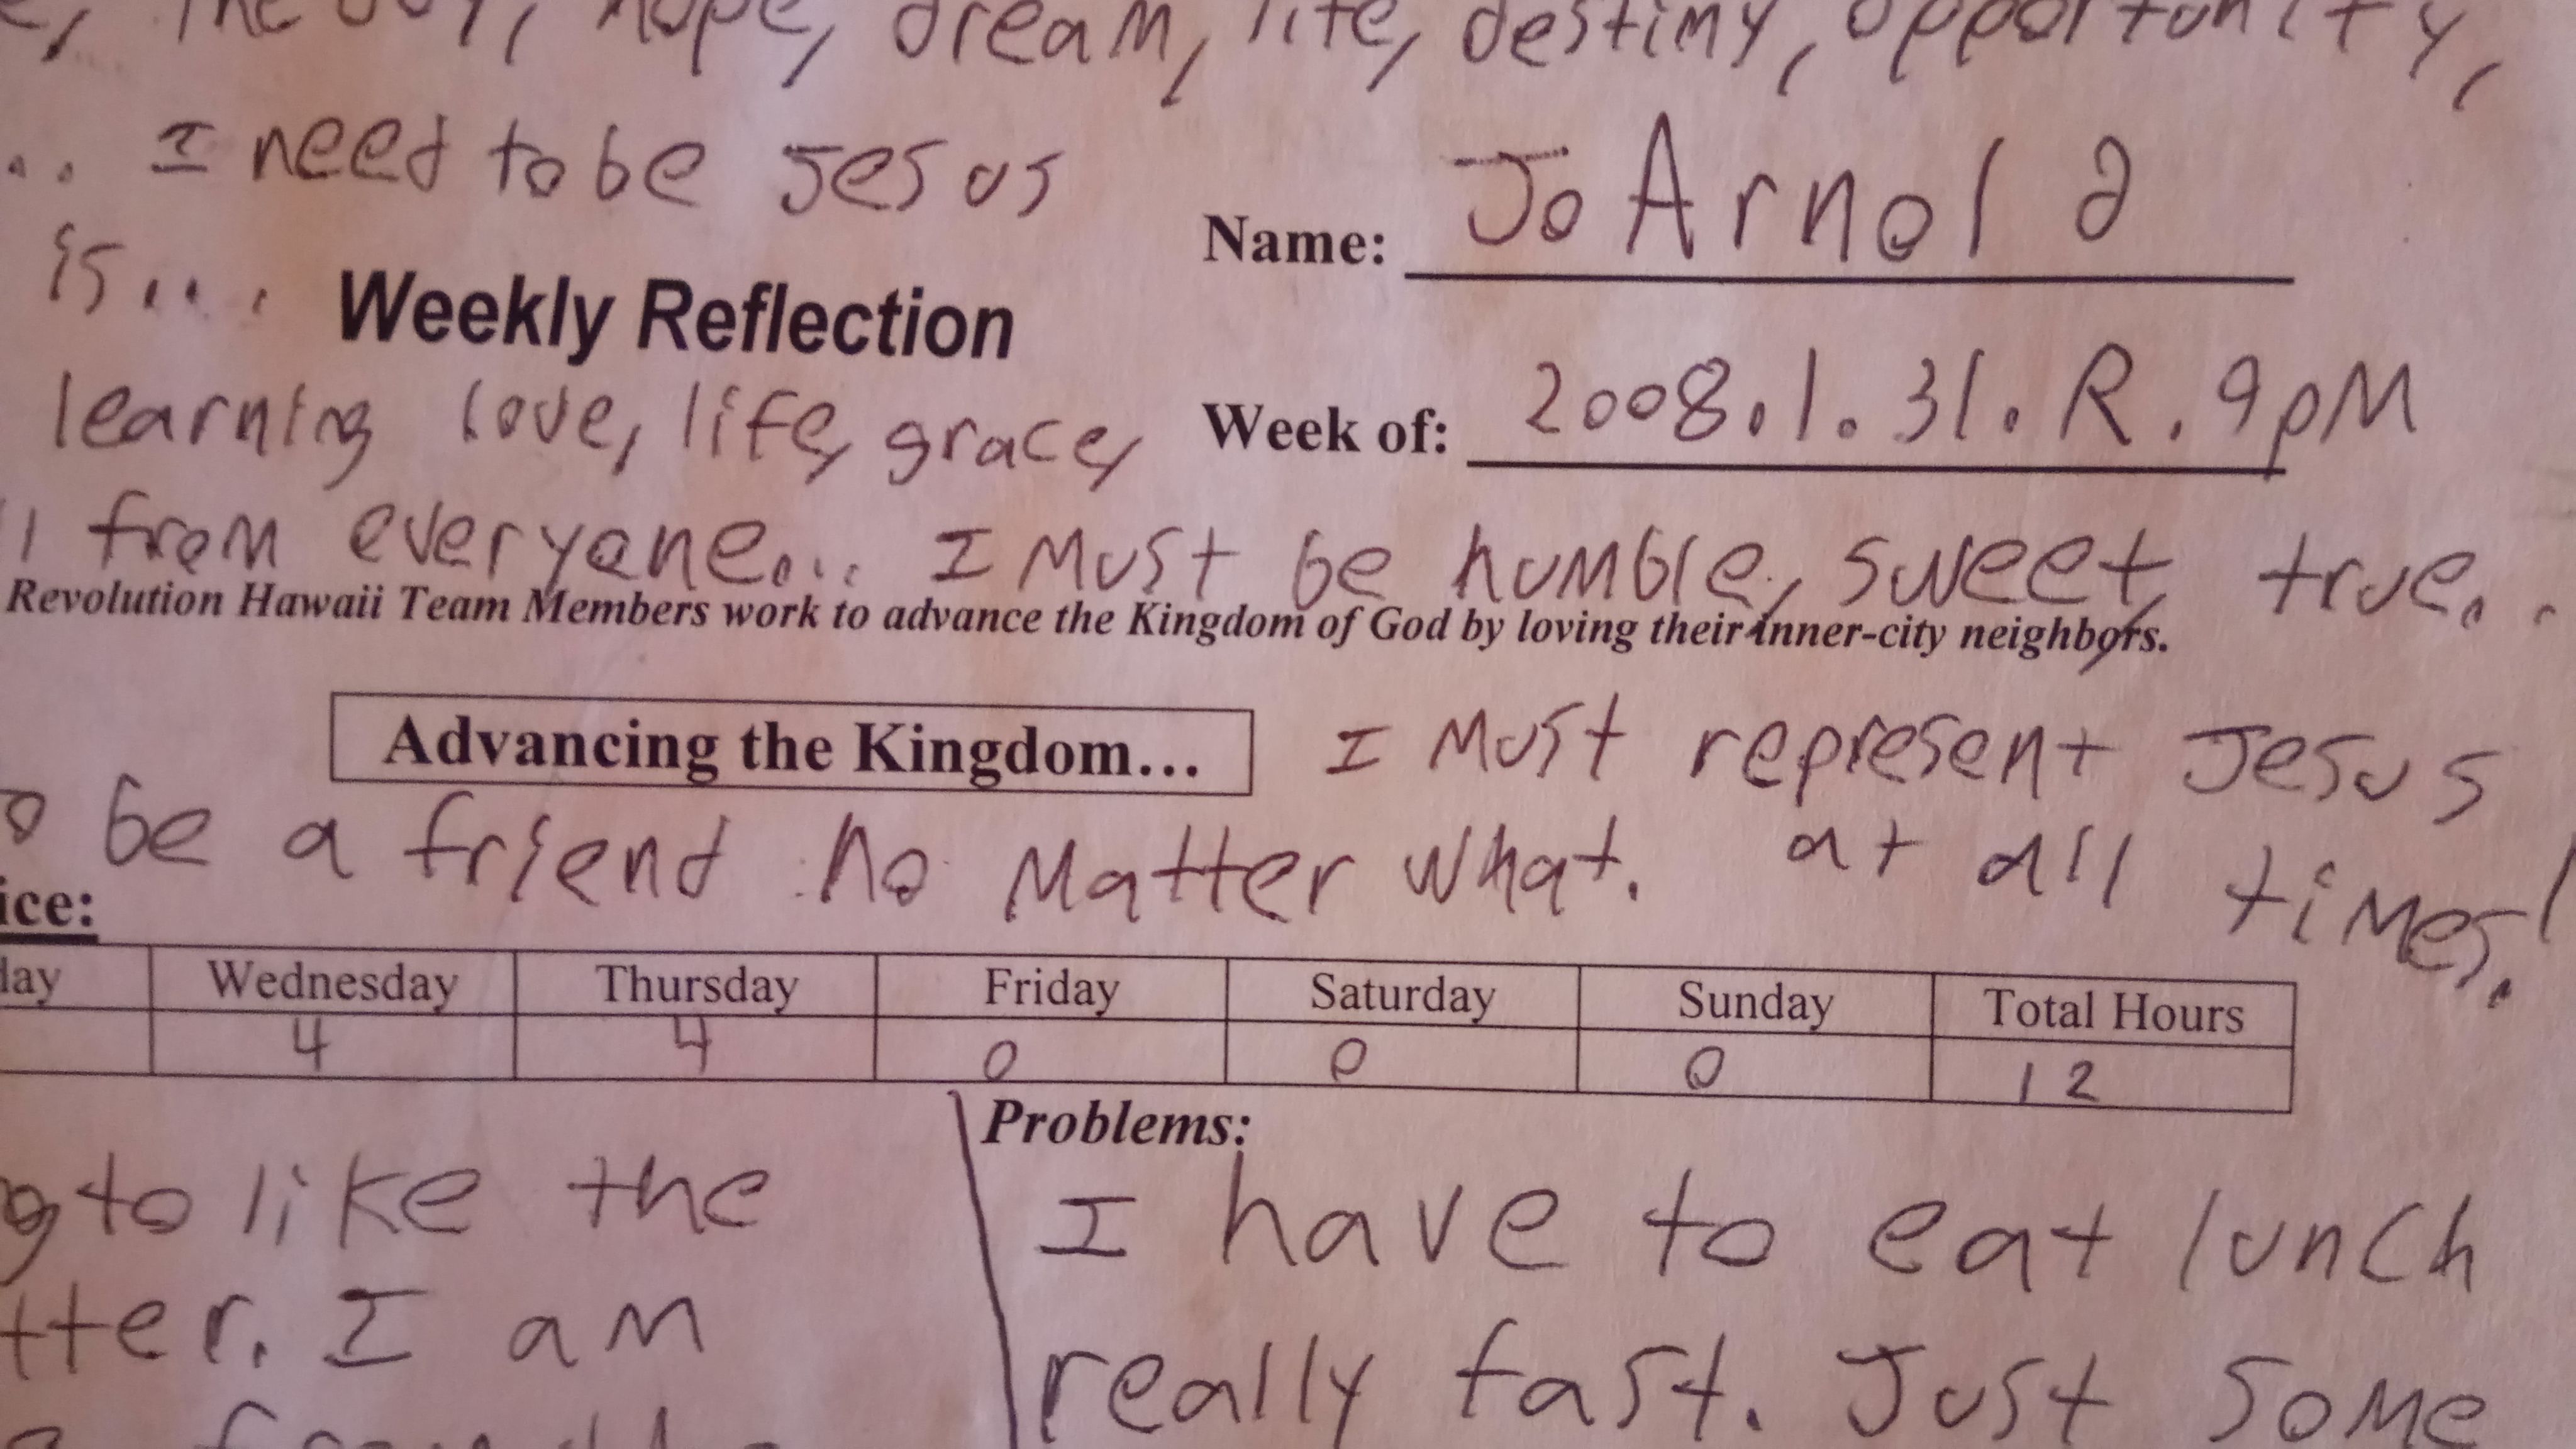 theory, hope, dream, life, destiny, opportunity,
... I need to be Jesus
Name: Jo Arnold
is....
Weekly Reflection
learning love, life, grace,
Week of: 2008.1.31.R.9pM
from everyone.... I must be humble, sweet, true..
Revolution Hawaii Team Members work to advance the Kingdom of God by loving their inner-city neighbors.
Advancing the Kingdom... I must represent Jesus
be a friend no matter what. at all times!
ice:
day Wednesday Thursday Friday Saturday Sunday Total Hours
4 4 0 0 0 12
Problems:
to like the
I have to eat lunch
tter. I am
really fast. Just some